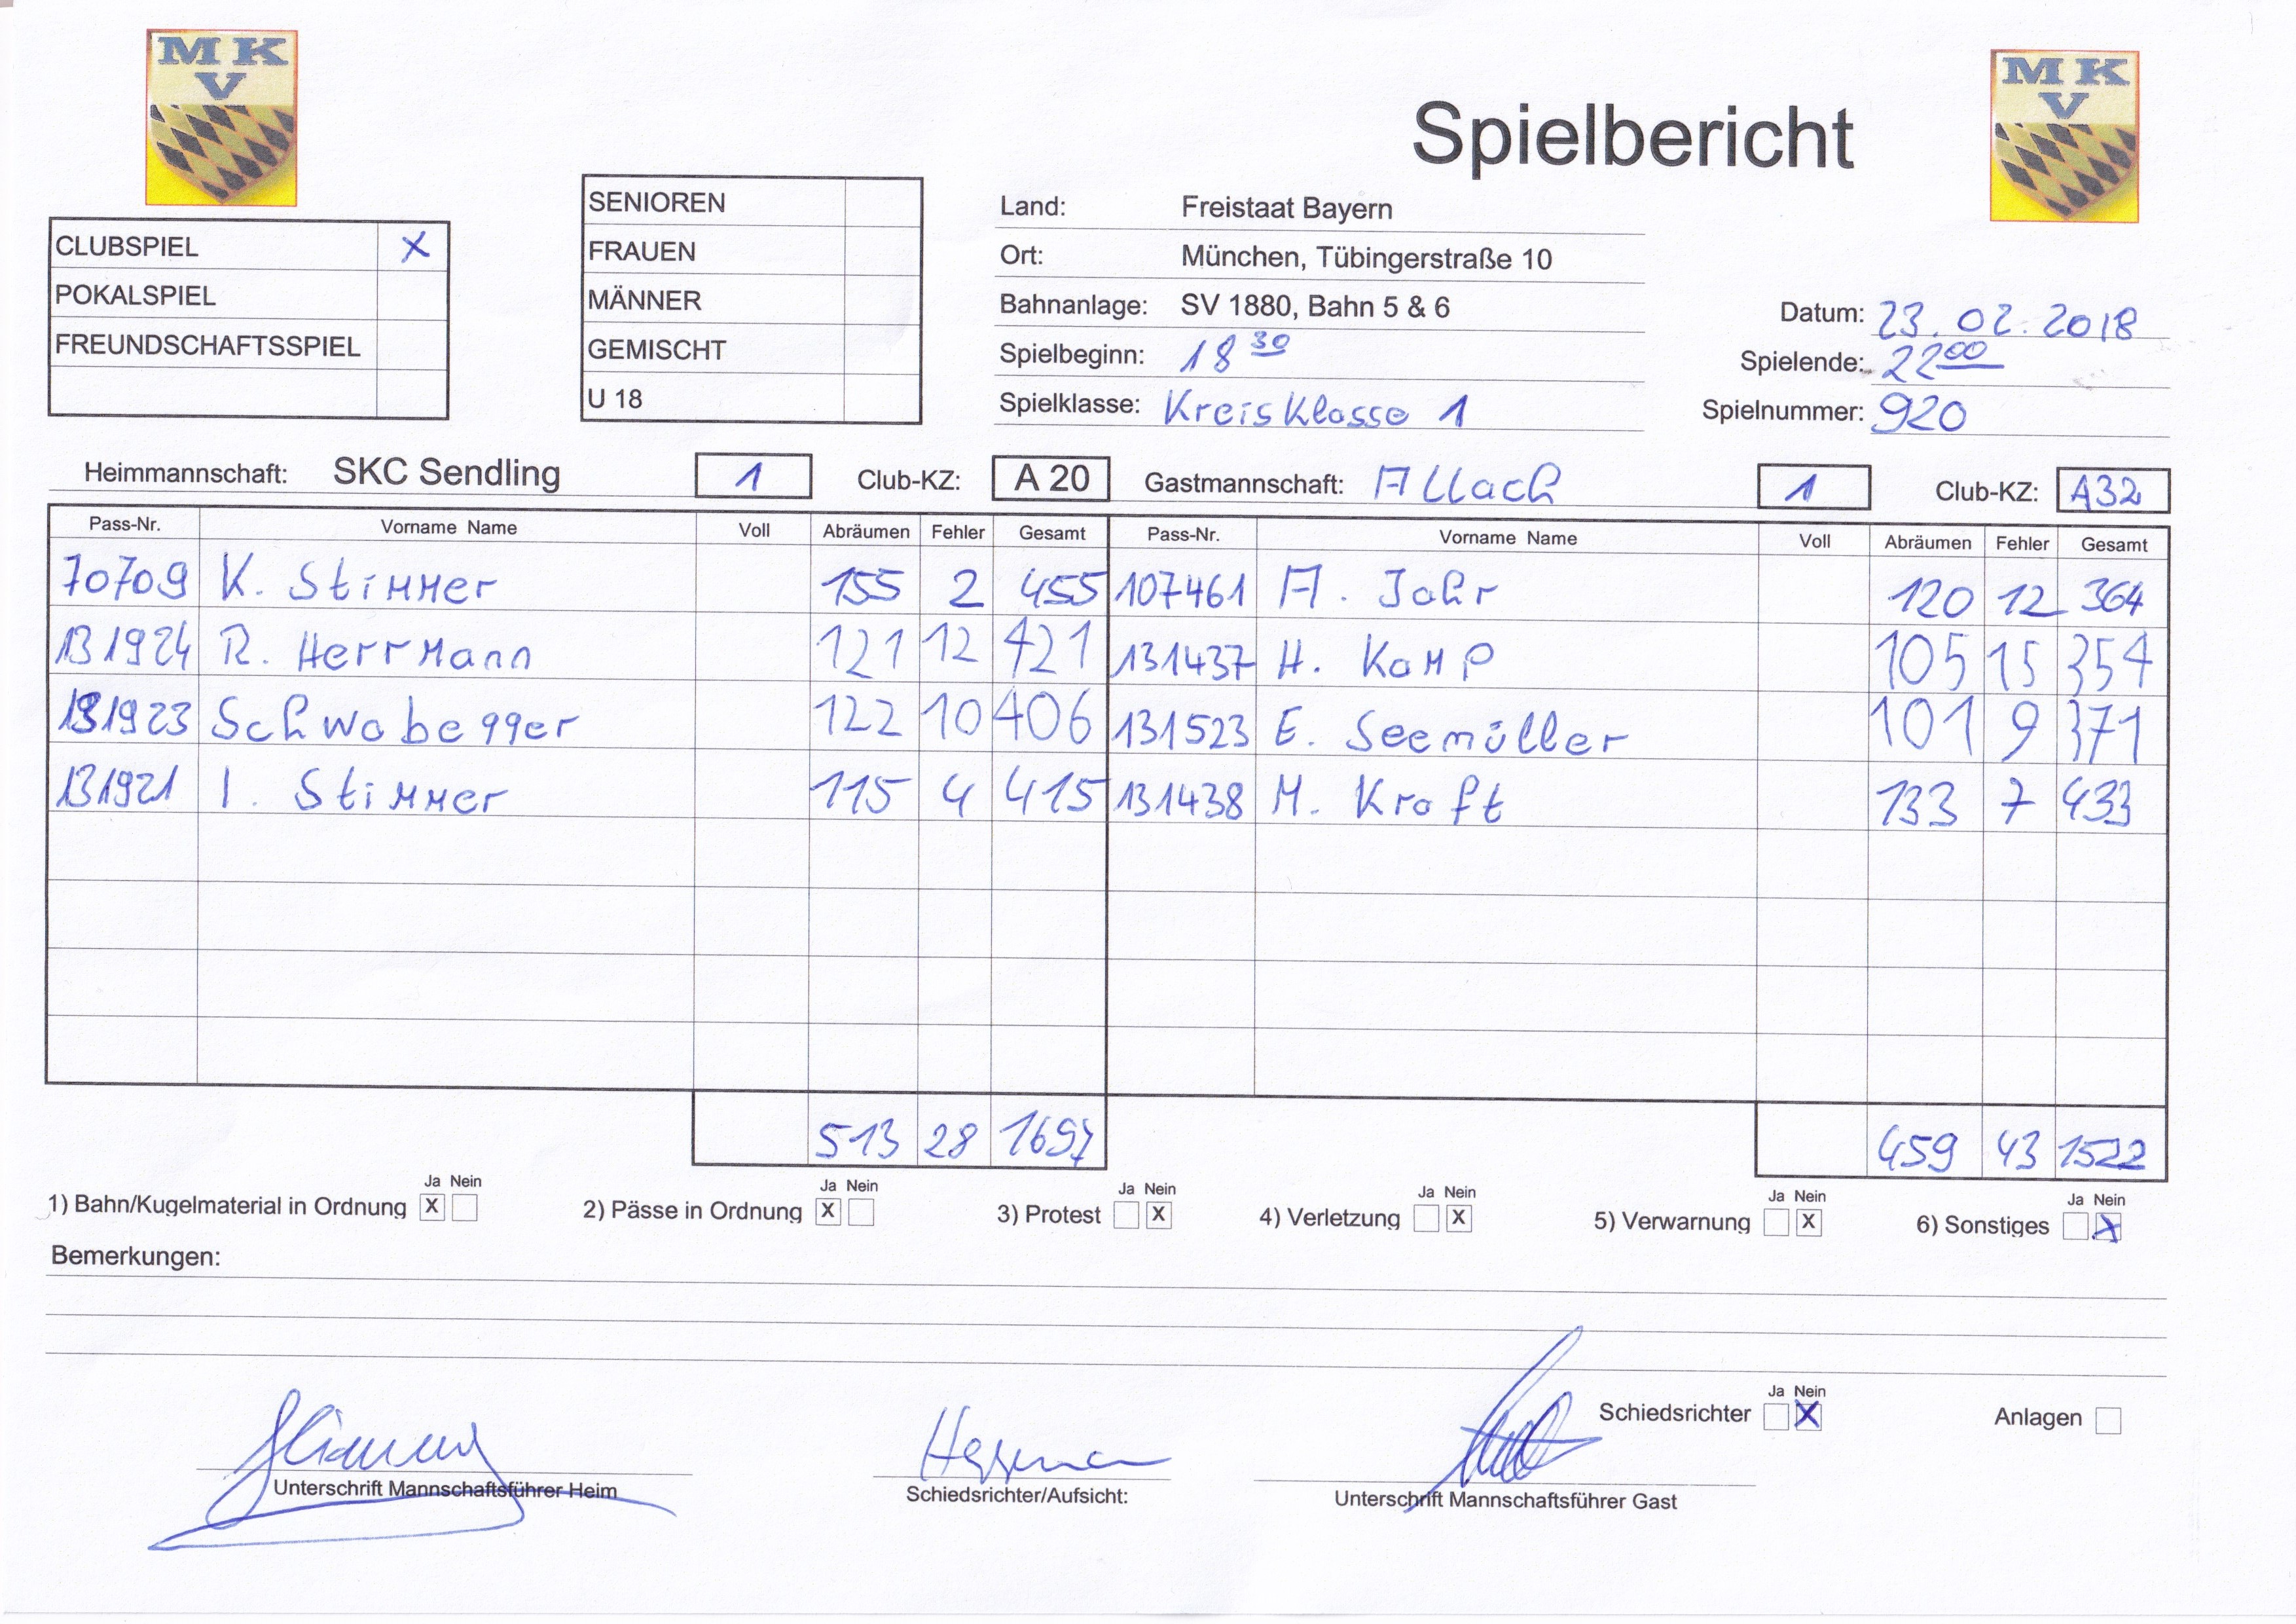 MK
V
MK
V
Spielbericht
CLUBSPIEL X
POKALSPIEL
FREUNDSCHAFTSSPIEL
SENIOREN
FRAUEN
MÄNNER
GEMISCHT
U 18
Land: Freistaat Bayern
Ort: München, Tübingerstraße 10
Bahnanlage: SV 1880, Bahn 5 & 6
Spielbeginn: 18 30
Spielklasse: Kreisklasse 1
Datum: 23.02.2018
Spielende: 22 00
Spielnummer: 920
Heimmannschaft: SKC Sendling 1 Club-KZ: A 20 Gastmannschaft: Allach 1 Club-KZ: A32
Pass-Nr. Vorname Name Voll Abräumen Fehler Gesamt Pass-Nr. Vorname Name Voll Abräumen Fehler Gesamt
70709 K. Stimmer 155 2 455 107461 A. Jahr 120 12 364
131924 R. Herrmann 121 12 421 131437 H. Kamp 105 15 354
131923 Schwabegger 122 10 406 131523 E. Seemüller 101 9 371
131921 I. Stimmer 115 4 415 131438 M. Kraft 133 7 433
513 28 1697 459 43 1522
1) Bahn/Kugelmaterial in Ordnung Ja X Nein 2) Pässe in Ordnung Ja X Nein 3) Protest Ja Nein X 4) Verletzung Ja Nein X 5) Verwarnung Ja Nein X 6) Sonstiges Ja Nein X
Bemerkungen:
Schiedsrichter Ja Nein X Anlagen
Unterschrift Mannschaftsführer Heim Schiedsrichter/Aufsicht: Unterschrift Mannschaftsführer Gast